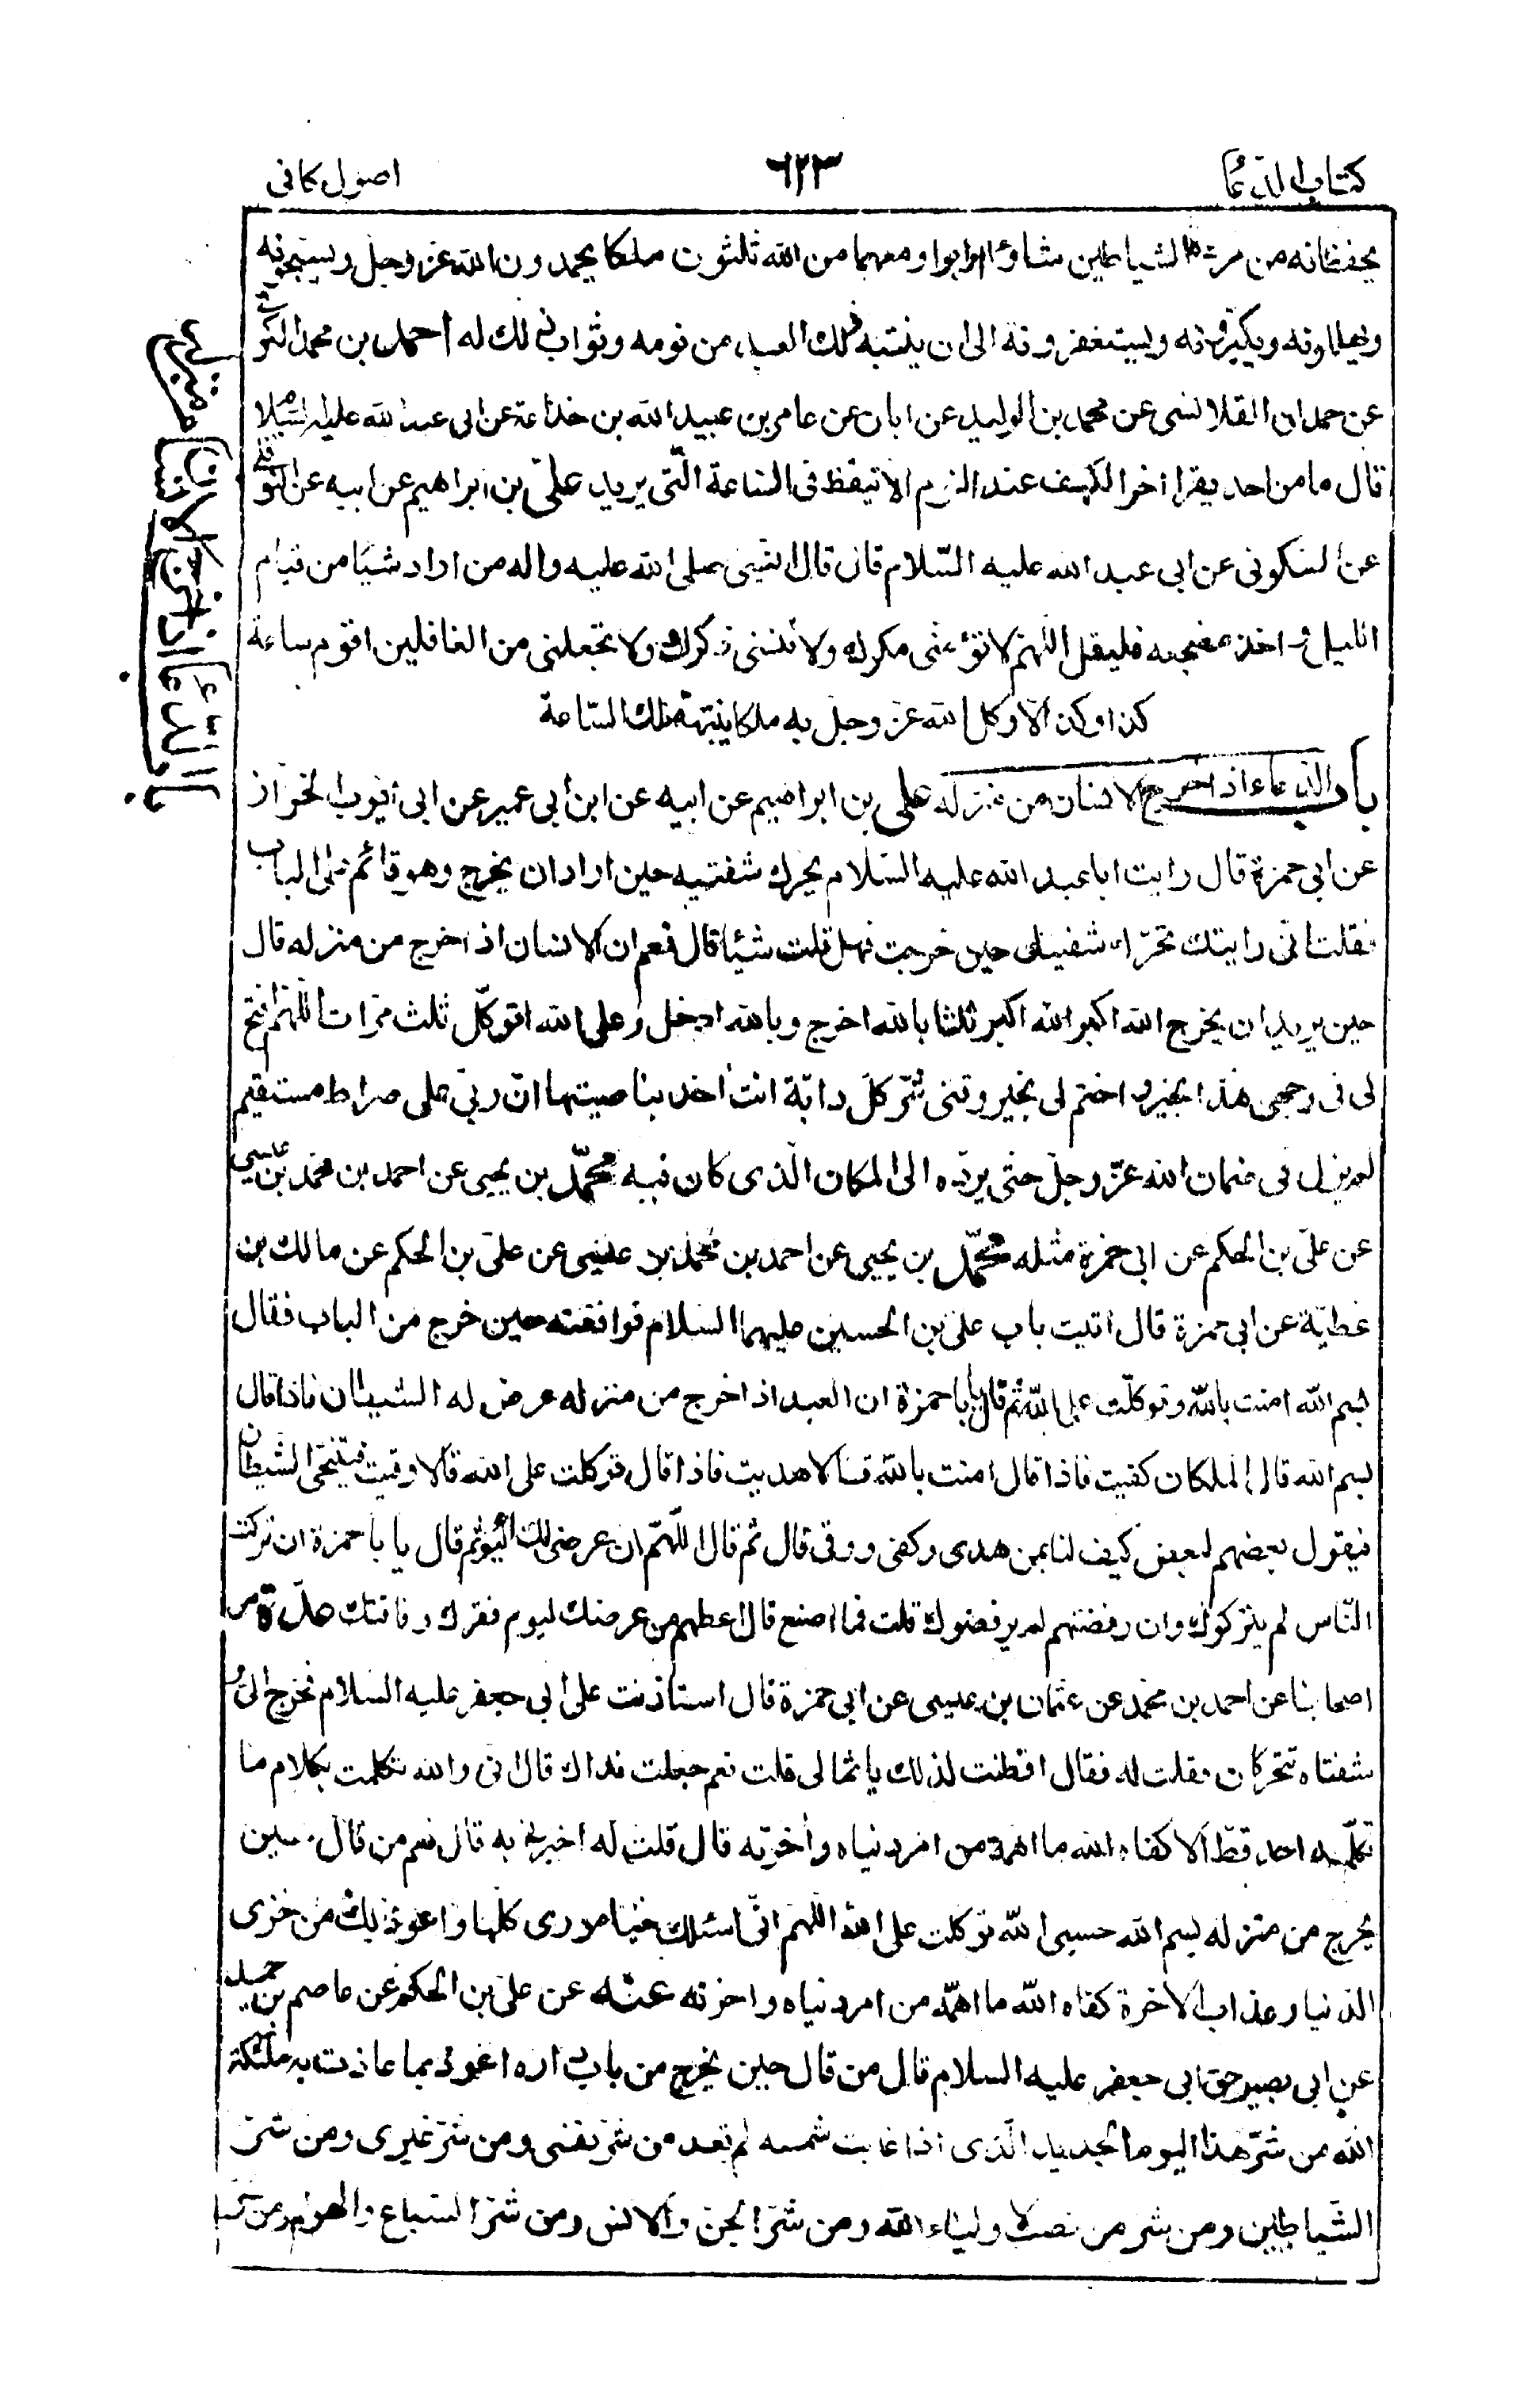 كتاب الدعا ٦٢٣ اصول كافى
يحفظانه من مردة الشياطين شاؤا او ابوا ومعهما من الله ثلثون ملكا يحمدون الله عز وجل ويسبحونه
ويهللونه ويكبرونه ويستغفرونه الى ان ينتبه ذلك العبد من نومه وثواب ذلك له احمد بن محمد الكوفى
عن حمدان القلانسى عن محمد بن الوليد عن ابان عن عامر بن عبيد الله بن خذاعة عن ابى عبد الله عليه السلام
قال ما من احد يقرا اخر الكهف عند النوم الا تيقظ فى الساعة الّتى يريد علىّ بن ابراهيم عن ابيه عن النوفلى
عن السكونى عن ابى عبد الله عليه السّلام قال قال النبى صلى الله عليه واله من اراد شيئا من قيام
الليل و اخذ مضجعه فليقل اللّهمّ لا تؤمنّى مكرك ولا تنسنى ذكرك ولا تجعلنى من الغافلين اقوم ساعة
كذا وكذا الّا وكل الله عز وجل به ملكا ينبّهه تلك السّاعة
باب الدعاء اذا خرج الانسان من منزله على بن ابراهيم عن ابيه عن ابن أبى عمير عن ابى أيوب الخزاز
عن ابى حمزة قال رايت ابا عبد الله عليه السّلام يحرك شفتيه حين اراد ان يخرج وهو قائم على الباب
فقلت انى رايتك تحرّك شفتيك حين خرجت فهل قلت شيئا قال نعم ان الانسان اذا خرج من منزله قال
حين يريد ان يخرج الله اكبر الله اكبر ثلثا بالله اخرج وبالله ادخل وعلى الله اتوكّل ثلث مرّات اللّهمّ افتح
لى فى وجهى هذا بخير و اختم لى بخير وقنى شرّ كلّ دابّة انت اخذ بناصيتها انّ ربّى على صراط مستقيم
لم يزل فى ضمان الله عزّ وجلّ حتى يردّه الى المكان الّذى كان فيه محمّد بن يحيى عن احمد بن محمد بن عيسى
عن علىّ بن الحكم عن ابى حمزة مثله محمّد بن يحيى عن احمد بن محمد بن عيسى عن علىّ بن الحكم عن مالك بن
عطيّة عن ابى حمزة قال اتيت باب علىّ بن الحسين عليهما السلام فوافقته حين خرج من الباب فقال
بسم الله امنت بالله وتوكلّت على الله ثم قال يا با حمزة ان العبد اذا خرج من منزله عرض له الشيطان فاذا قال
بسم الله قال الملكان كفيت فاذا قال امنت بالله قالا هديت فاذا قال توكلت على الله قالا وقيت فيتنحّى الشيطان
فيقول بعضهم لبعض كيف لنا بمن هدى وكفى ووقى قال ثم قال اللّهمّ ان عرضى لك اليوم ثم قال يا با حمزة ان تركت
النّاس لم يتركوك وان رفضتهم لم يرفضوك قلت فما اصنع قال اعطهم من عرضك ليوم فقرك وفاقتك عدّة من
اصحابنا عن احمد بن محمد عن عثمان بن عيسى عن ابى حمزة قال استاذنت على ابى جعفر عليه السلام فخرج الىّ و
شفتاه تتحركان فقلت له فقال افطنت لذلك يا ثمالى قلت نعم جعلت فداك قال انى والله تكلمت بكلام ما
تكلّم به احد قطّ الّا كفاه الله ما اهمّه من امر دنياه وأخرته قال قلت له اخبرنى به قال نعم من قال حين
يخرج من منزله بسم الله حسبى الله توكلت على الله اللّهم انّى اسئلك خير امورى كلّها واعوذ بك من خزى
الدّنيا وعذاب الاخرة كفاه الله ما اهمّه من امر دنياه واخرته عنه عن علىّ بن الحكم عن عاصم بن حميد
عن ابى بصير عن ابى جعفر عليه السلام قال من قال حين يخرج من باب داره اعوذ بما عاذت به ملئكة
الله من شرّ هذا اليوم الجديد الّذى اذا غابت شمسه لم تعد من شرّ نفسى ومن شرّ غيرى ومن شرّ
الشّياطين ومن شر من نصب لاولياء الله ومن شرّ الجنّ والانس ومن شرّ السّباع والهوام ومن
باب الدّعا اذا خرج الانسان من منزله